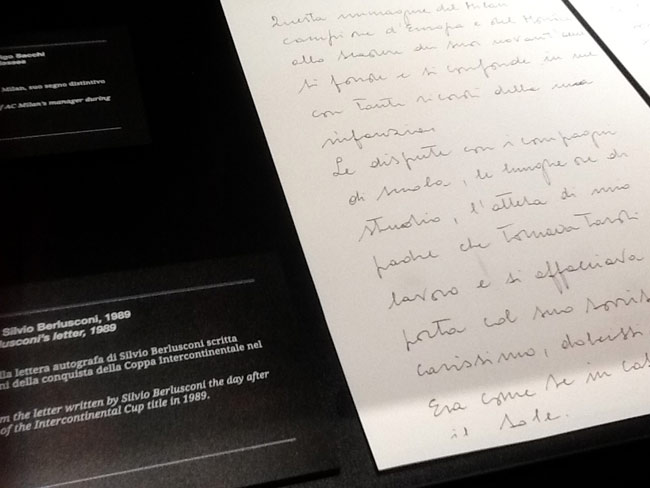 igo Sacchi
Milan, suo segno distintivo
f AC Milan's manager during
Silvio Berlusconi, 1989
usconi's letter, 1989
lla lettera autografa di Silvio Berlusconi scritta
ni della conquista della Coppa Intercontinentale nel
m the letter written by Silvio Berlusconi the day after
of the Intercontinental Cup title in 1989.
Questa immagine del Milan
campione d'Europa e del Mondo
allo scadere dei suoi novant'anni
si fonde e si confonde in me
con tanti ricordi della mia
infanzia.
Le dispute con i compagni
di scuola, le lunghe ore di
studio, l'attesa di mio
padre che tornava tardi
lavoro e si affacciava
porta col suo sorris
carissimo, dolcissi
Era come se in cas
il sole.